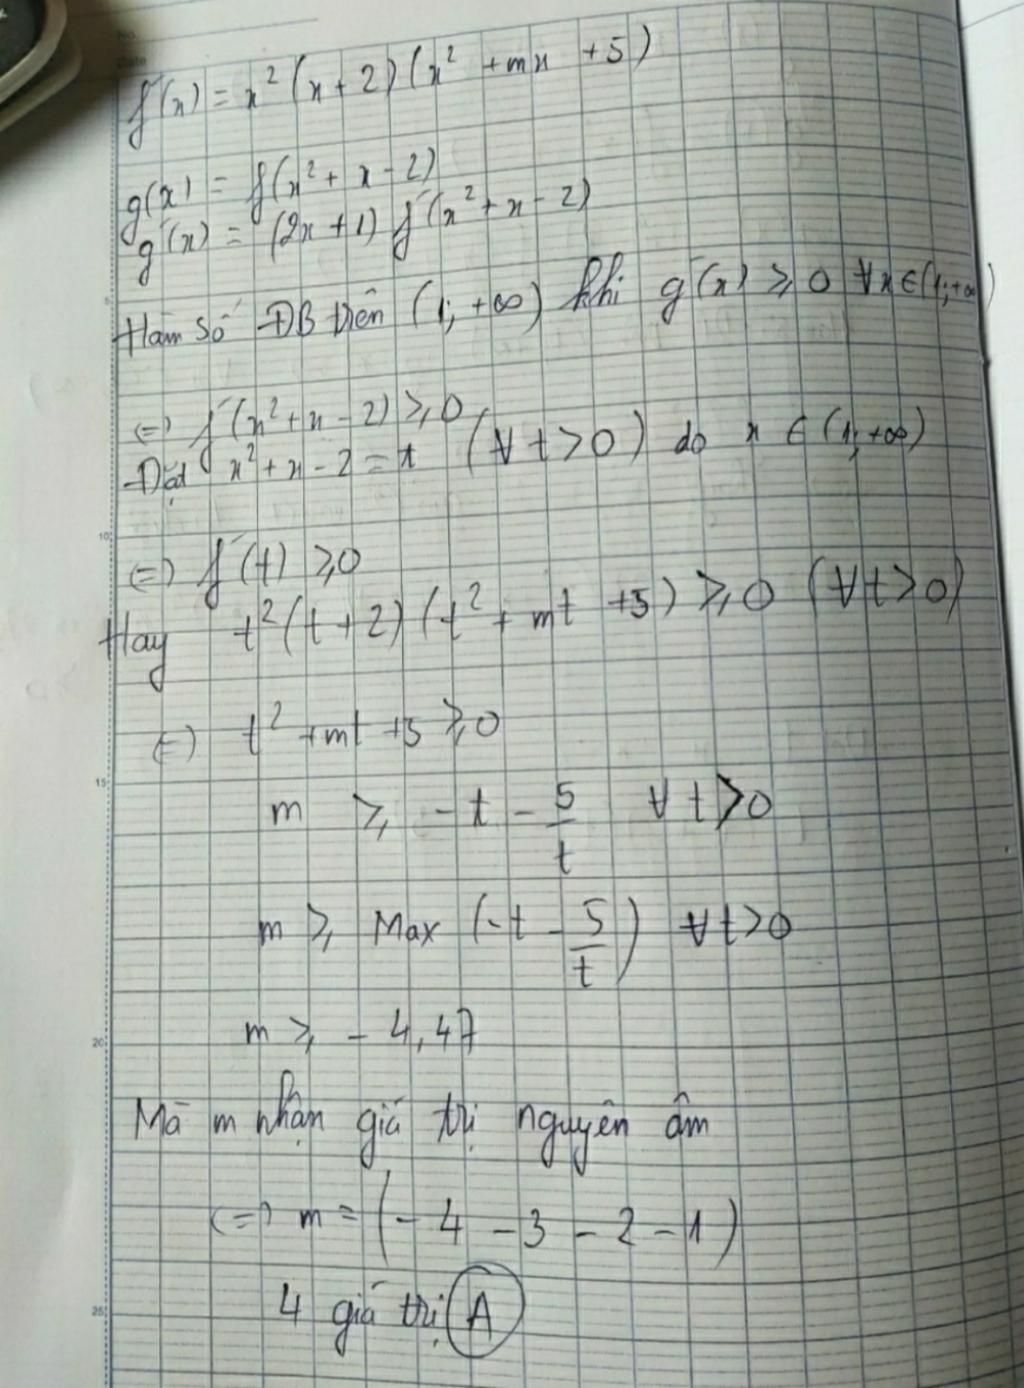 f'(x) = x² (x + 2) (x² + mx + 5)
g(x) = f(x² + x - 2)
g'(x) = (2x + 1) f'(x² + x - 2)
Hàm số ĐB trên (1; +∞) khi g'(x) ⩾ 0 ∀x ∈ (1; +∞)
(=) f'(x² + x - 2) ⩾ 0
Đặt x² + x - 2 = t (∀ t > 0) do x ∈ (1; +∞)
(=) f'(t) ⩾ 0
Hay t² (t + 2) (t² + mt + 5) ⩾ 0 (∀t > 0)
(=) t² + mt + 5 ⩾ 0
m ⩾ - t - 5/t ∀ t > 0
m ⩾ Max (-t - 5/t) ∀ t > 0
m ⩾ - 4,47
Mà m nhận giá trị nguyên âm
(=) m = (- 4 - 3 - 2 - 1)
4 giá trị A
5
10
15
20
25